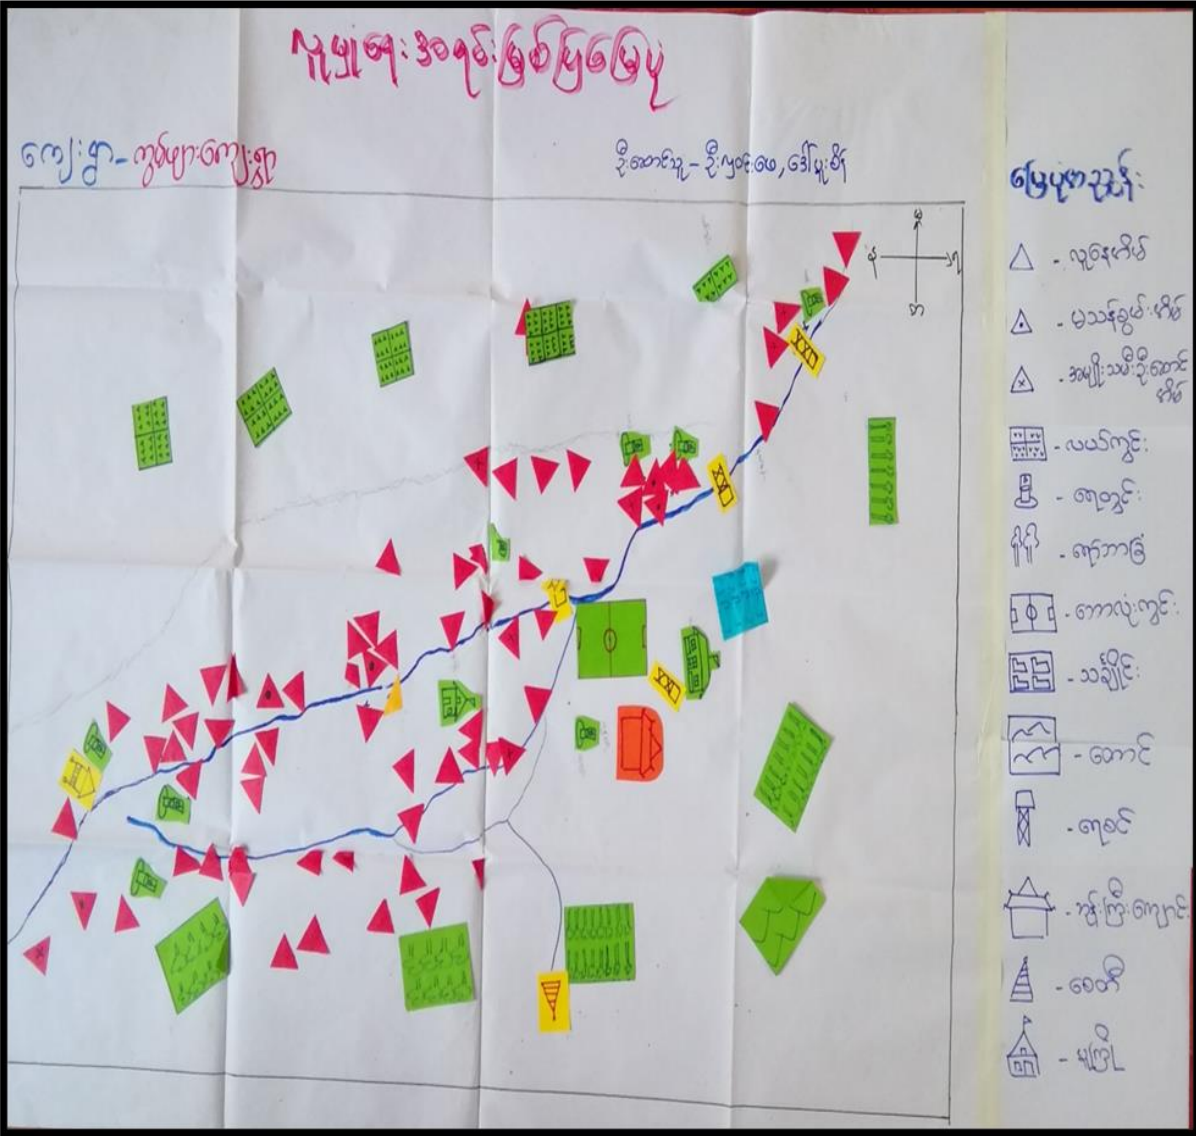 လူမှုရေးအရင်းမြစ်ပြမြေပုံ
ကျေးရွာ - ကွမ်ဖျားကျေးရွာ
ဦးဆောင်သူ -
မြေပုံအညွှန်း
မ
န
တ
- လူနေအိမ်
- မသန်စွမ်းအိမ်
- အမျိုးသမီးဦးဆောင်
အိမ်
- လယ်ကွင်း
- ရေတွင်း
- ရော်ဘာခြံ
- ဘောလုံးကွင်း
- သင်္ချိုင်း
- တောင်
- ရေစင်
- ဘုန်းကြီးကျောင်း
- စေတီ
- မူကြို